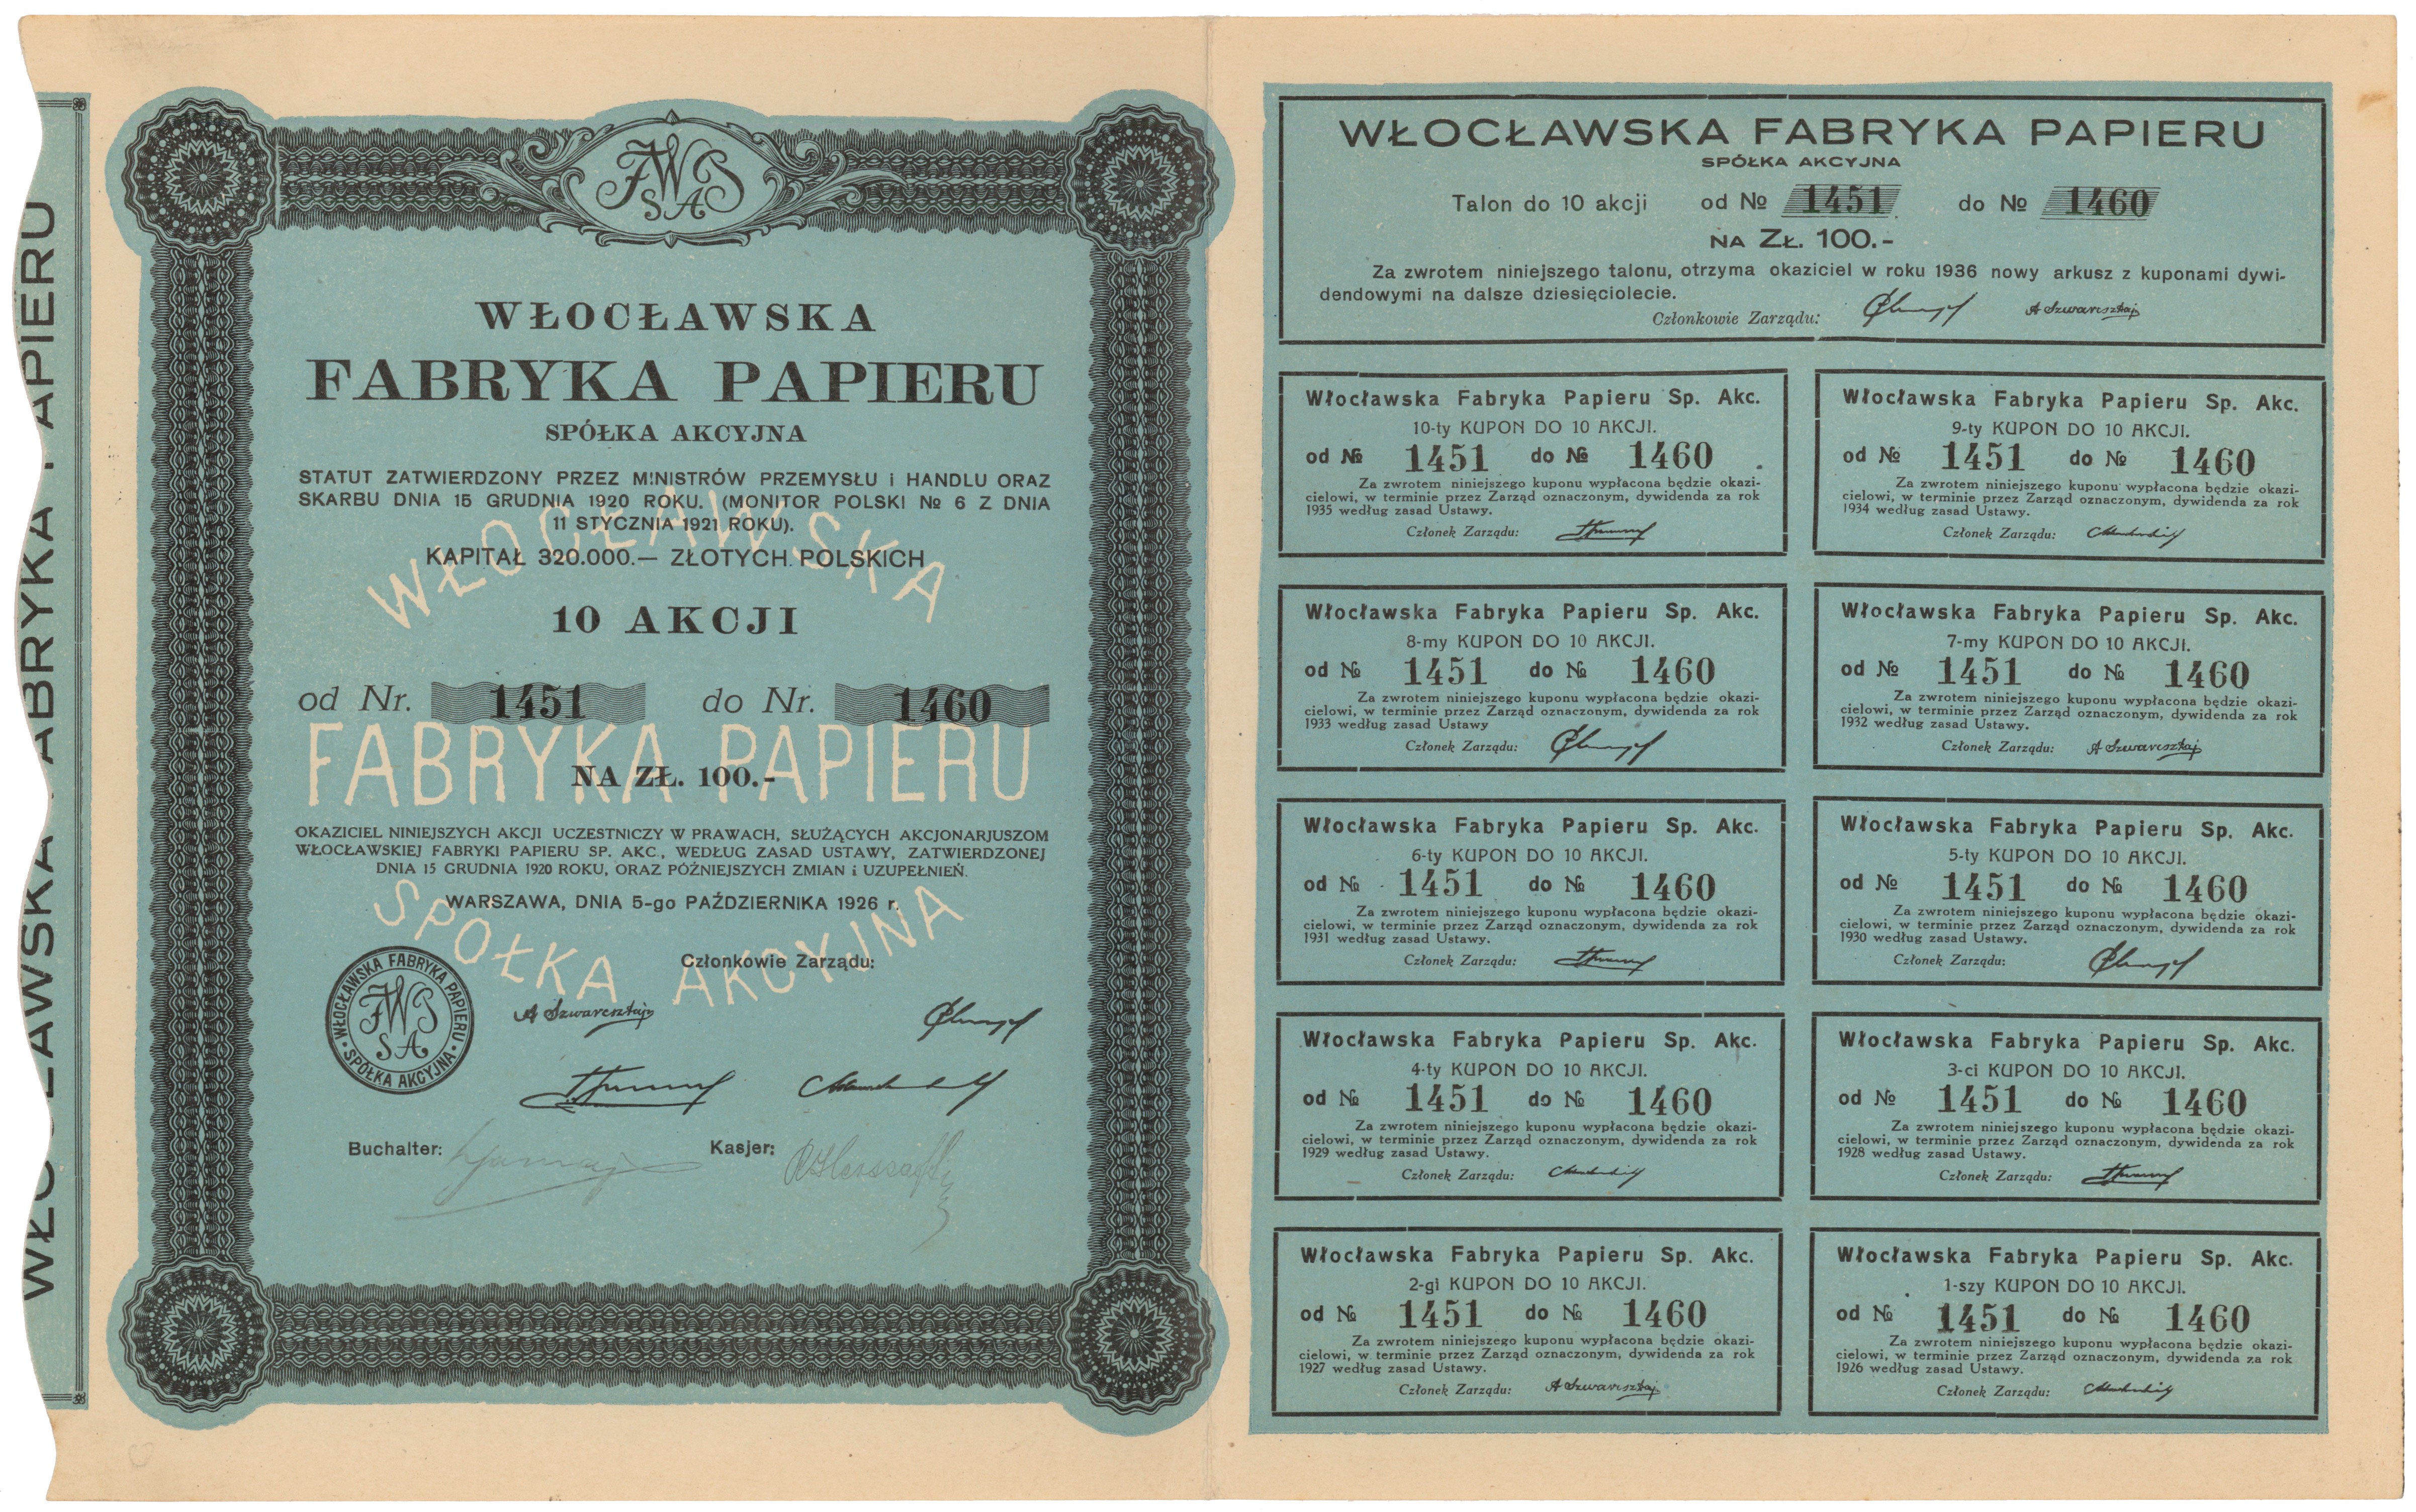 WŁOCŁAWSKA FABRYKA PAPIERU
WŁOCŁAWSKA
FABRYKA PAPIERU
SPÓŁKA AKCYJNA
STATUT ZATWIERDZONY PRZEZ MINISTRÓW PRZEMYSŁU i HANDLU ORAZ
SKARBU DNIA 15 GRUDNIA 1920 ROKU. (MONITOR POLSKI № 6 Z DNIA
11 STYCZNIA 1921 ROKU).
KAPITAŁ 320.000.— ZŁOTYCH POLSKICH
WŁOCŁAWSKA
10 AKCJI
od Nr. 1451 do Nr. 1460
FABRYKA PAPIERU
NA ZŁ. 100.-
OKAZICIEL NINIEJSZYCH AKCJI UCZESTNICZY W PRAWACH, SŁUŻĄCYCH AKCJONARJUSZOM
WŁOCŁAWSKIEJ FABRYKI PAPIERU SP. AKC., WEDŁUG ZASAD USTAWY, ZATWIERDZONEJ
DNIA 15 GRUDNIA 1920 ROKU, ORAZ PÓŹNIEJSZYCH ZMIAN i UZUPEŁNIEŃ.
WARSZAWA, DNIA 5-go PAŹDZIERNIKA 1926 r.
SPÓŁKA AKCYJNA
Członkowie Zarządu:
WŁOCŁAWSKA FABRYKA PAPIERU
SPÓŁKA AKCYJNA
A Szwarcsztajn
Buchalter: Kasjer:
WŁOCŁAWSKA FABRYKA PAPIERU
SPÓŁKA AKCYJNA
Talon do 10 akcji od № 1451 do № 1460
NA ZŁ. 100.-
Za zwrotem niniejszego talonu, otrzyma okaziciel w roku 1936 nowy arkusz z kuponami dywi-
dendowymi na dalsze dziesięciolecie.
Członkowie Zarządu: A Szwarcsztajn
Włocławska Fabryka Papieru Sp. Akc.
10-ty KUPON DO 10 AKCJI.
od № 1451 do № 1460
Za zwrotem niniejszego kuponu wypłacona będzie okazi-
cielowi, w terminie przez Zarząd oznaczonym, dywidenda za rok
1935 według zasad Ustawy.
Członek Zarządu:
Włocławska Fabryka Papieru Sp. Akc.
9-ty KUPON DO 10 AKCJI.
od № 1451 do № 1460
Za zwrotem niniejszego kuponu wypłacona będzie okazi-
cielowi, w terminie przez Zarząd oznaczonym, dywidenda za rok
1934 według zasad Ustawy.
Członek Zarządu:
Włocławska Fabryka Papieru Sp. Akc.
8-my KUPON DO 10 AKCJI.
od № 1451 do № 1460
Za zwrotem niniejszego kuponu wypłacona będzie okazi-
cielowi, w terminie przez Zarząd oznaczonym, dywidenda za rok
1933 według zasad Ustawy
Członek Zarządu:
Włocławska Fabryka Papieru Sp. Akc.
7-my KUPON DO 10 AKCJI.
od № 1451 do № 1460
Za zwrotem niniejszego kuponu wypłacona będzie okazi-
cielowi, w terminie przez Zarząd oznaczonym, dywidenda za rok
1932 według zasad Ustawy.
Członek Zarządu: A Szwarcsztajn
Włocławska Fabryka Papieru Sp. Akc.
6-ty KUPON DO 10 AKCJI.
od № 1451 do № 1460
Za zwrotem niniejszego kuponu wypłacona będzie okazi-
cielowi, w terminie przez Zarząd oznaczonym, dywidenda za rok
1931 według zasad Ustawy.
Członek Zarządu:
Włocławska Fabryka Papieru Sp. Akc.
5-ty KUPON DO 10 AKCJI.
od № 1451 do № 1460
Za zwrotem niniejszego kuponu wypłacona będzie okazi-
cielowi, w terminie przez Zarząd oznaczonym, dywidenda za rok
1930 według zasad Ustawy.
Członek Zarządu:
Włocławska Fabryka Papieru Sp. Akc.
4-ty KUPON DO 10 AKCJI.
od № 1451 do № 1460
Za zwrotem niniejszego kuponu wypłacona będzie okazi-
cielowi, w terminie przez Zarząd oznaczonym, dywidenda za rok
1929 według zasad Ustawy.
Członek Zarządu:
Włocławska Fabryka Papieru Sp. Akc.
3-ci KUPON DO 10 AKCJI.
od № 1451 do № 1460
Za zwrotem niniejszego kuponu wypłacona będzie okazi-
cielowi, w terminie przez Zarząd oznaczonym, dywidenda za rok
1928 według zasad Ustawy.
Członek Zarządu:
Włocławska Fabryka Papieru Sp. Akc.
2-gi KUPON DO 10 AKCJI.
od № 1451 do № 1460
Za zwrotem niniejszego kuponu wypłacona będzie okazi-
cielowi, w terminie przez Zarząd oznaczonym, dywidenda za rok
1927 według zasad Ustawy.
Członek Zarządu: A Szwarcsztajn
Włocławska Fabryka Papieru Sp. Akc.
1-szy KUPON DO 10 AKCJI.
od № 1451 do № 1460
Za zwrotem niniejszego kuponu wypłacona będzie okazi-
cielowi, w terminie przez Zarząd oznaczonym, dywidenda za rok
1926 według zasad Ustawy.
Członek Zarządu: